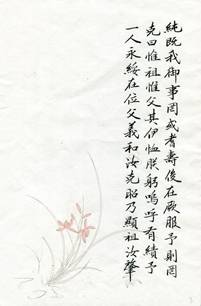 純既我御事罔或者壽後在厥服予則罔
克曰惟祖惟父其伊恤朕躬嗚呼有績予
一人永綏在位父義和汝克昭乃顯祖汝肇